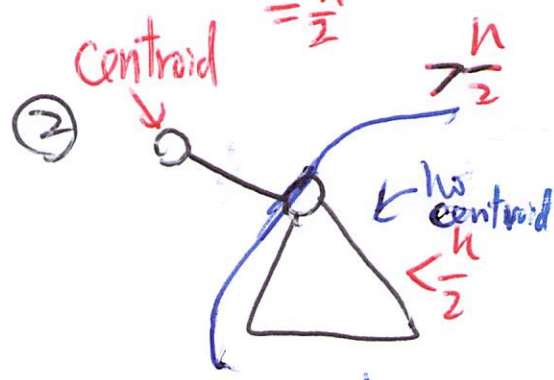 = n/2
Centroid
> n/2
②
no
centroid
< n/2